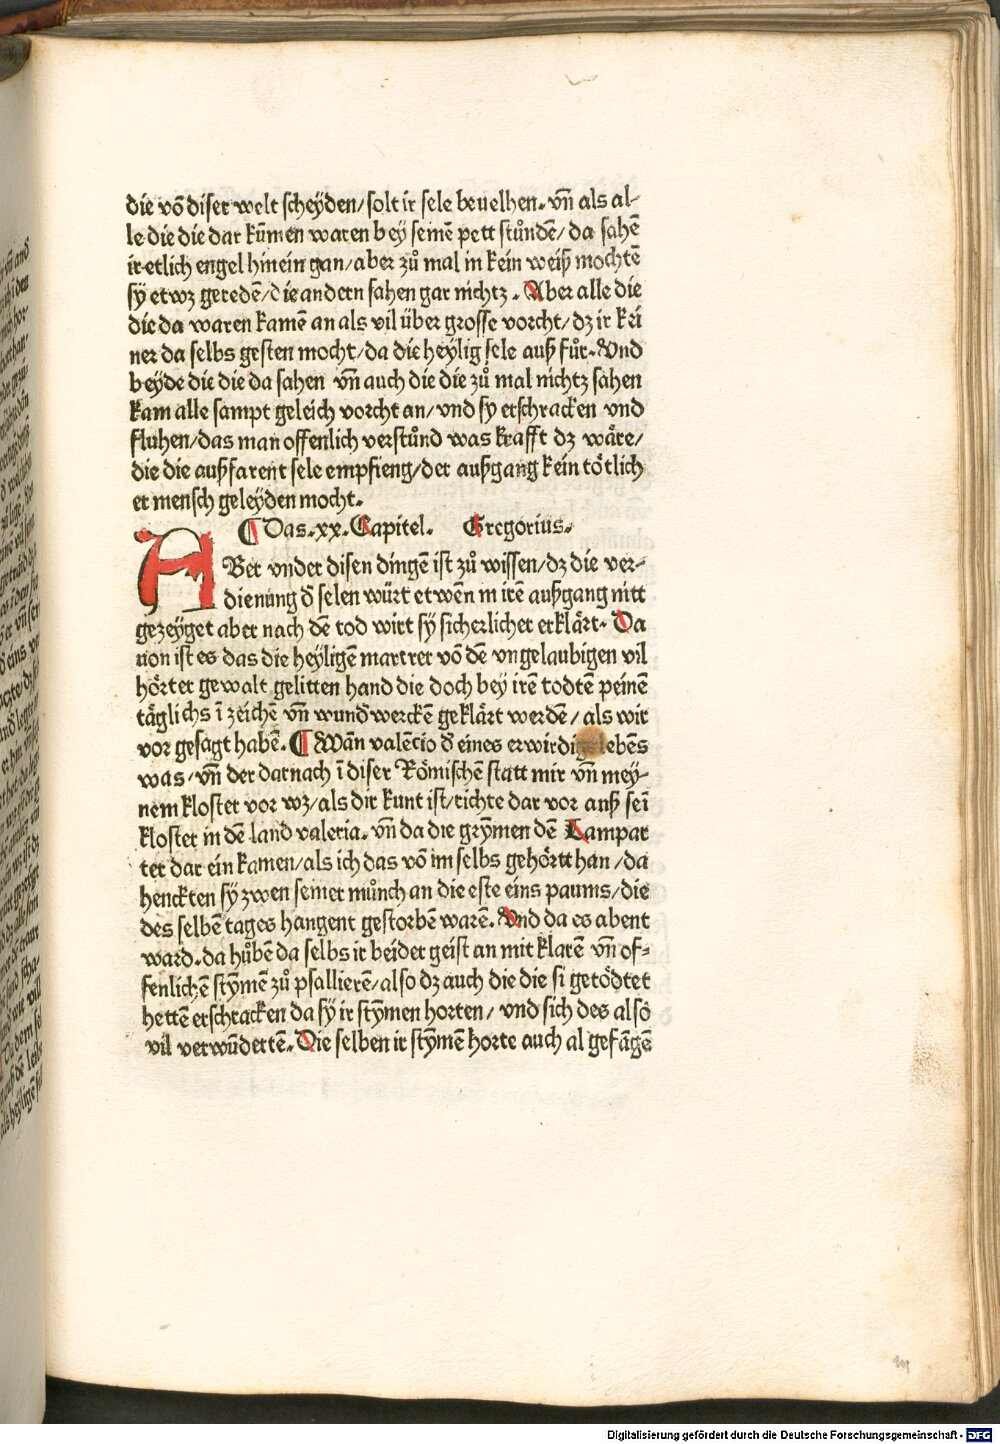 die vō diser welt scheyden/solt ir sele beuelhen. vn̄ als al-
le die die dar kūmen waren bey semē pett stůndē/da sahē
ir etlich engel hinein gan/aber zů mal in kein weiß mochtē
sÿ etwz geredē/die andern sahen gar nichtz. Aber alle die
die da waren kamē an als vil über grosse vorcht/dz ir kei
ner da selbs gesten mocht/da die heylig sele auß fůr. Vnd
beyde die die da sahen vn̄ auch die die zů mal nichtz sahen
kam alle sampt geleich vorcht an/vnd sy erschracken vnd
fluhen/das man offenlich verstůnd was krafft dz wåre/
die die außfarent sele empfieng/der außgang kein tötlich
er mensch geleyden mocht.
¶ Das .xx. Capitel. Gregorius.
ABer vnder disen dingen ist zů wissen/dz die ver-
dienung d̄ selen würt etwēn in irē außgang nitt
gezeyget aber nach dē tod wirt sÿ sicherlicher erklårt. Da
uon ist es das die heyligē martrer vō dē vngelaubigen vil
hörter gewalt gelitten hand die doch bey irē todtē peinen
täglichs ī zeichē vn̄ wundwerckē geklärt werdē/als wir
vor gesagt habē. ¶ Wān valēcio d̄ eines erwirdigē lebēs
was/vn̄ der darnach ī diser Römischē statt mir vn̄ mey-
nem kloster vor wz/als dir kunt ist/richte dar vor auß seī
kloster in dē land valeria. vn̄ da die grymen dē Lampar
ter dar ein kamen/als ich das vō im selbs gehört han/da
henckten sÿ zwen seiner mūnch an die este eins paums/die
des selbē tages hangent gestorbē warē. Vnd da es abent
ward. da hůbē da selbs ir beider geist an mit klarē vn̄ of-
fenlichē stymē zů psallierē/also dz auch die die si getödtet
hettē erschracken da sÿ ir stymen horten/vnd sich des also
vil verwūdertē. Die selben ir stymē horte auch al gefāgē
Digitalisierung gefördert durch die Deutsche Forschungsgemeinschaft - DFG